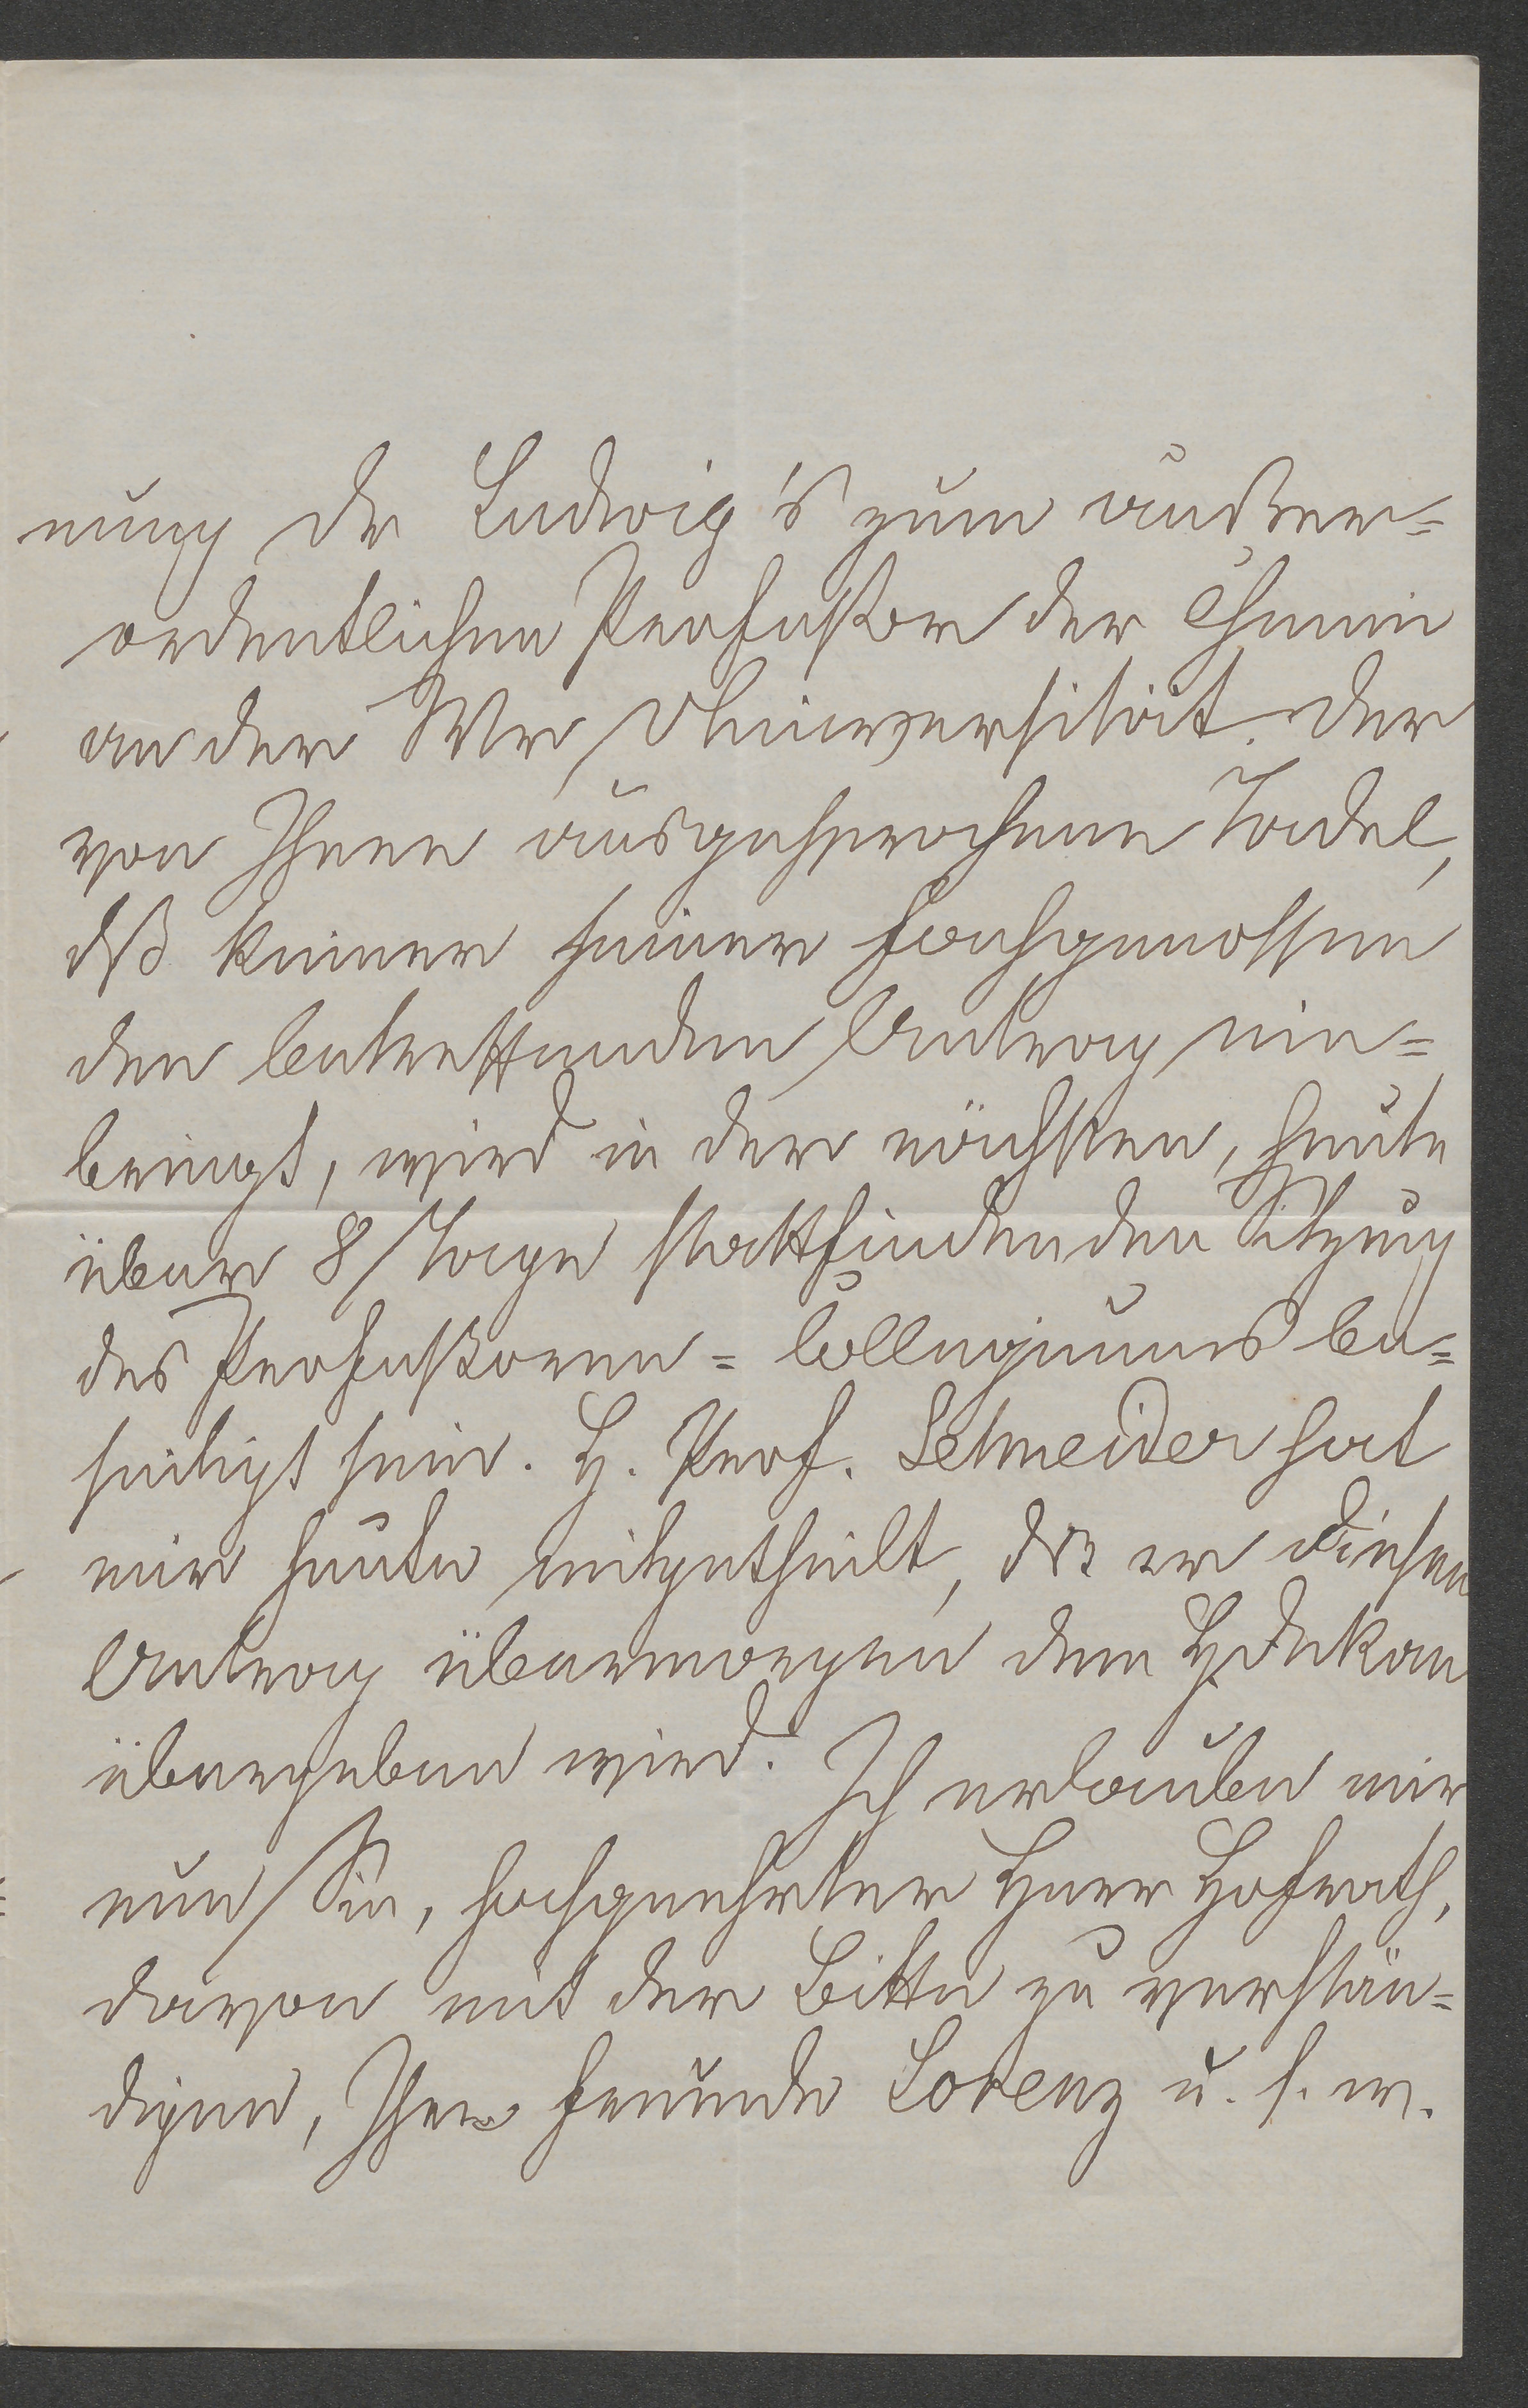 nung Dr Ludwig's zum außer=
ordentlichen Professor der Chemie
an der Wr Universität. Der
von Ihnen ausgesprochene Tadel,
dß keiner seiner Fachgenossen
den betreffenden Antrag ein=
bringt, wird in der nächsten, heute
über 8 Tage stattfindenden Sitzung
des Professoren=Collegiums be=
seitigt sein. H. Prof. Schneider hat
mir heute mitgetheilt, dß er diesen
Antrag übermorgen dem H Dekan
übergeben wird. Ich erlaube mir
nun Sie, hochgeehrter Herr Hofrath,
davon mit der Bitte zu verstän=
digen, Ihre Freunde Lorenz u. s. w.